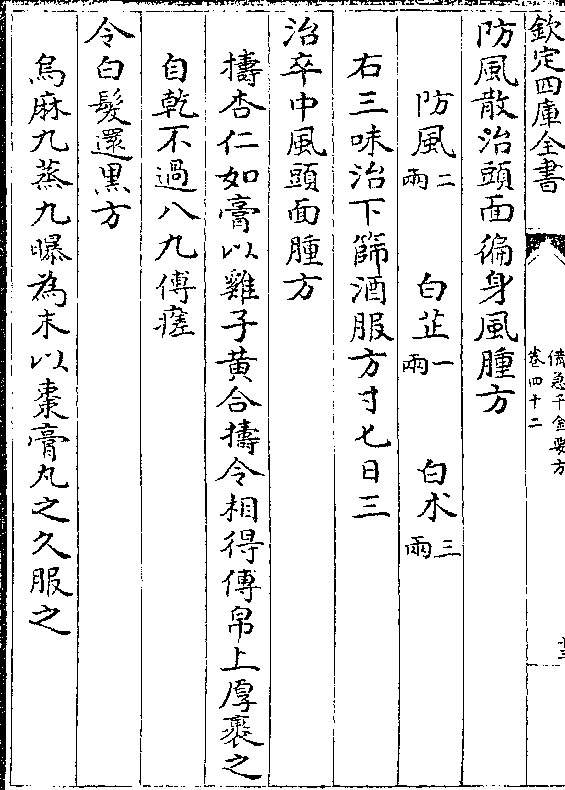 欽定四庫全書
備急千金要方
卷四十二
防風散治頭面徧身風腫方
防風二兩 白芷一兩 白术三兩
右三味治下篩酒服方寸匕日三
治卒中風頭面腫方
擣杏仁如膏以雞子黃合擣令相得傅帛上厚裹之
自乾不過八九傅瘥
令白髮還黑方
烏麻九蒸九曝為末以棗膏丸之久服之